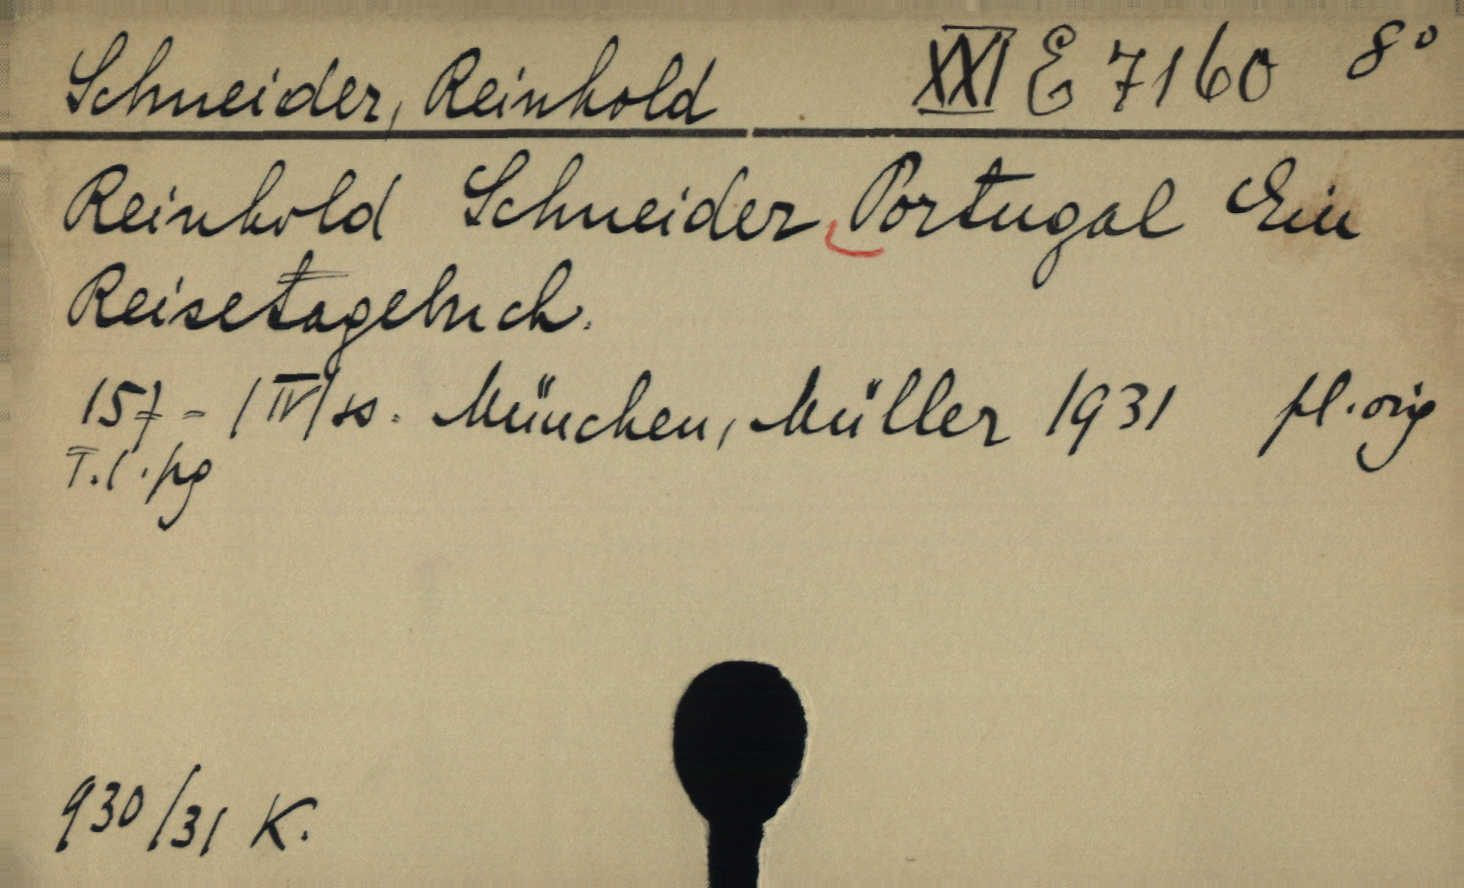 Schneider, Reinhold XXI E 7160 8°
Reinhold Schneider Portugal Ein
Reisetagebuch.
157 - /IV/ ss. München, Müller 1931 pl. orig
T.l. pg
930/31 K.